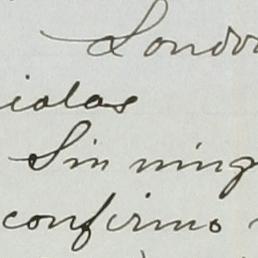 Londo
iolas
Sin ning
confirmo